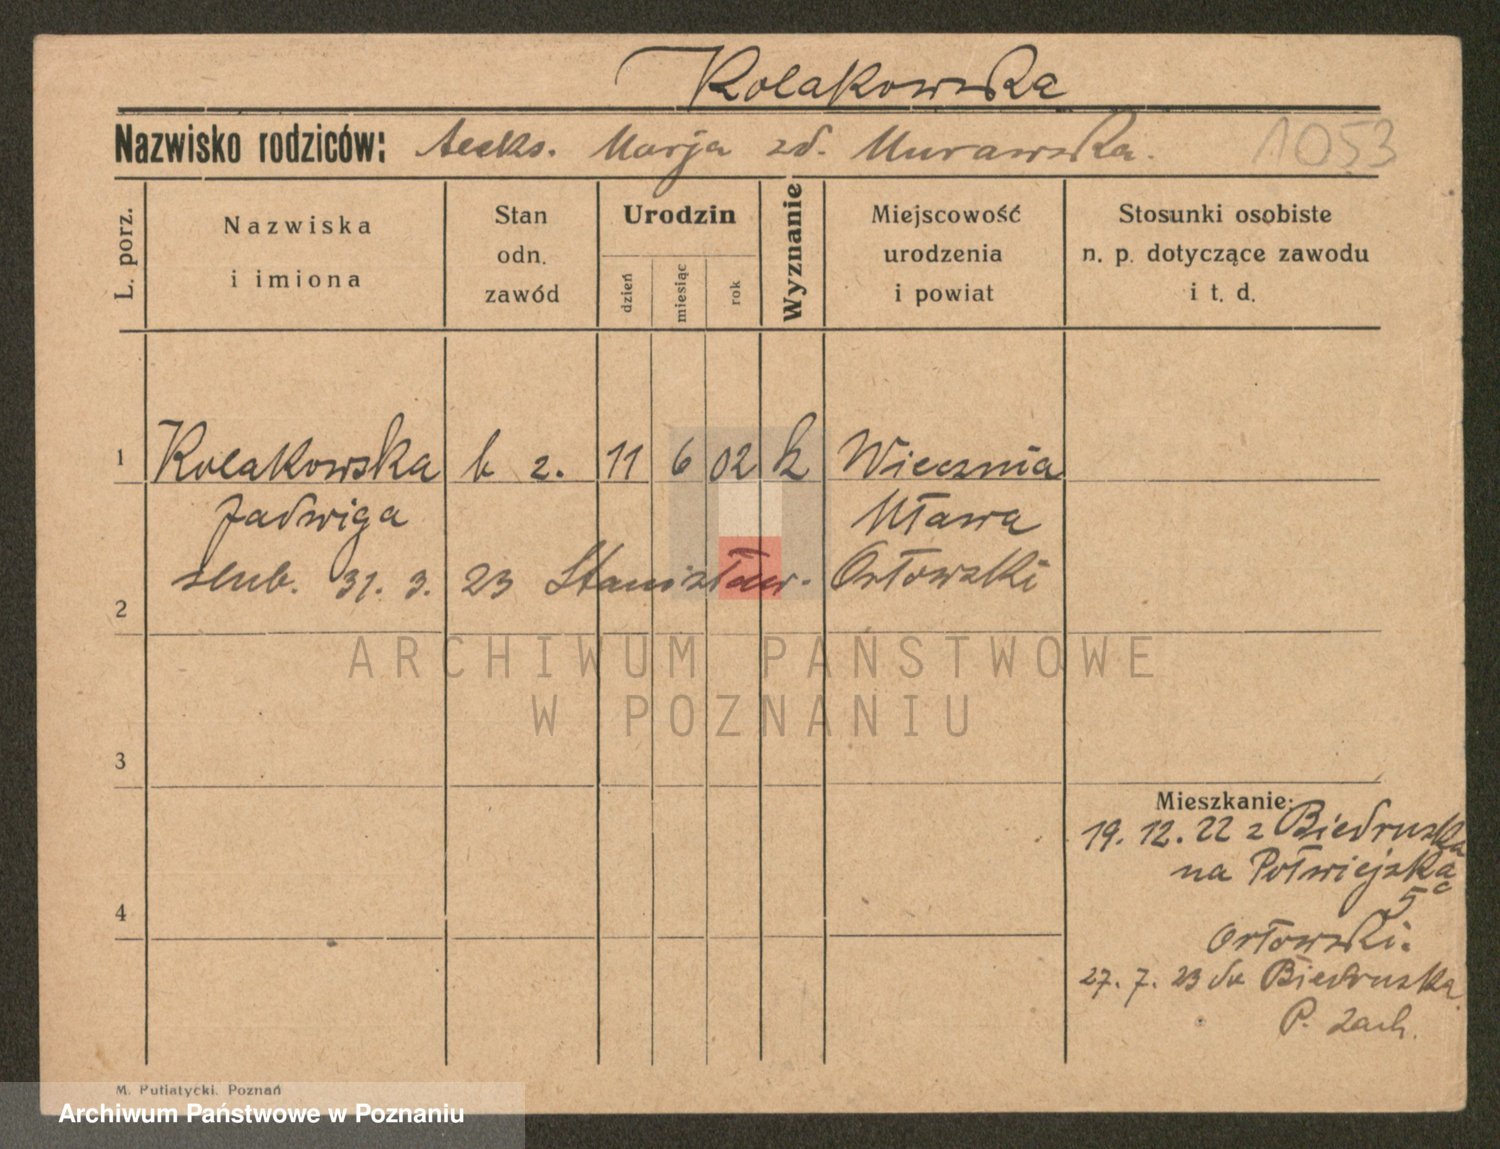 Kolakowska
Nazwisko rodziców: Aleks. Marja zd. Murawska. 1053
L. porz.
Nazwiska
i imiona
Stan
odn.
zawód
Urodzin
dzień
miesiąc
rok
Wyznanie
Miejscowość
urodzenia
i powiat
Stosunki osobiste
n. p. dotyczące zawodu
i t. d.
1 Kolakowska b z. 11 6 02 k Wiecznia
Jadwiga Mława
2 slub. 31. 3. 23 Stanisław. Orłowski
ARCHIWUM PAŃSTWOWE
W POZNANIU
3
Mieszkanie:
19. 12. 22 z Biedruska
na Półwiejska
5
4
Orłowski.
27. 7. 23 do Biedruska
P. Zach.
M. Putiatycki. Poznań
Archiwum Państwowe w Poznaniu